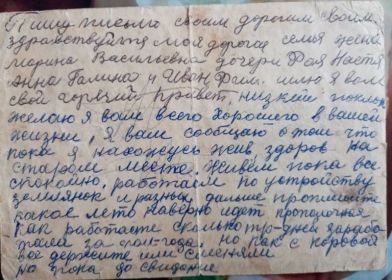 Пишу письмо своим дорогим своим
здравствуйте моя дорогая семья жена
Марина Васильевна дочери Фая Настя
Анна Галина и Иван шлю я вам
свой горячий привет, низкий поклон
желаю я вам всего хорошего в вашей
жизни, я вам сообщаю о том что
пока я нахожусь жив здоров на
старом месте. Живем пока все
спокойно, работаем по устройству
землянок и разных, дальше пропишите
какое лето наверно идет прополочная
как работаете сколько тру-дней зарабо
тала за пол-года но как с коровой
все держите или сменяли
но пока до свидание